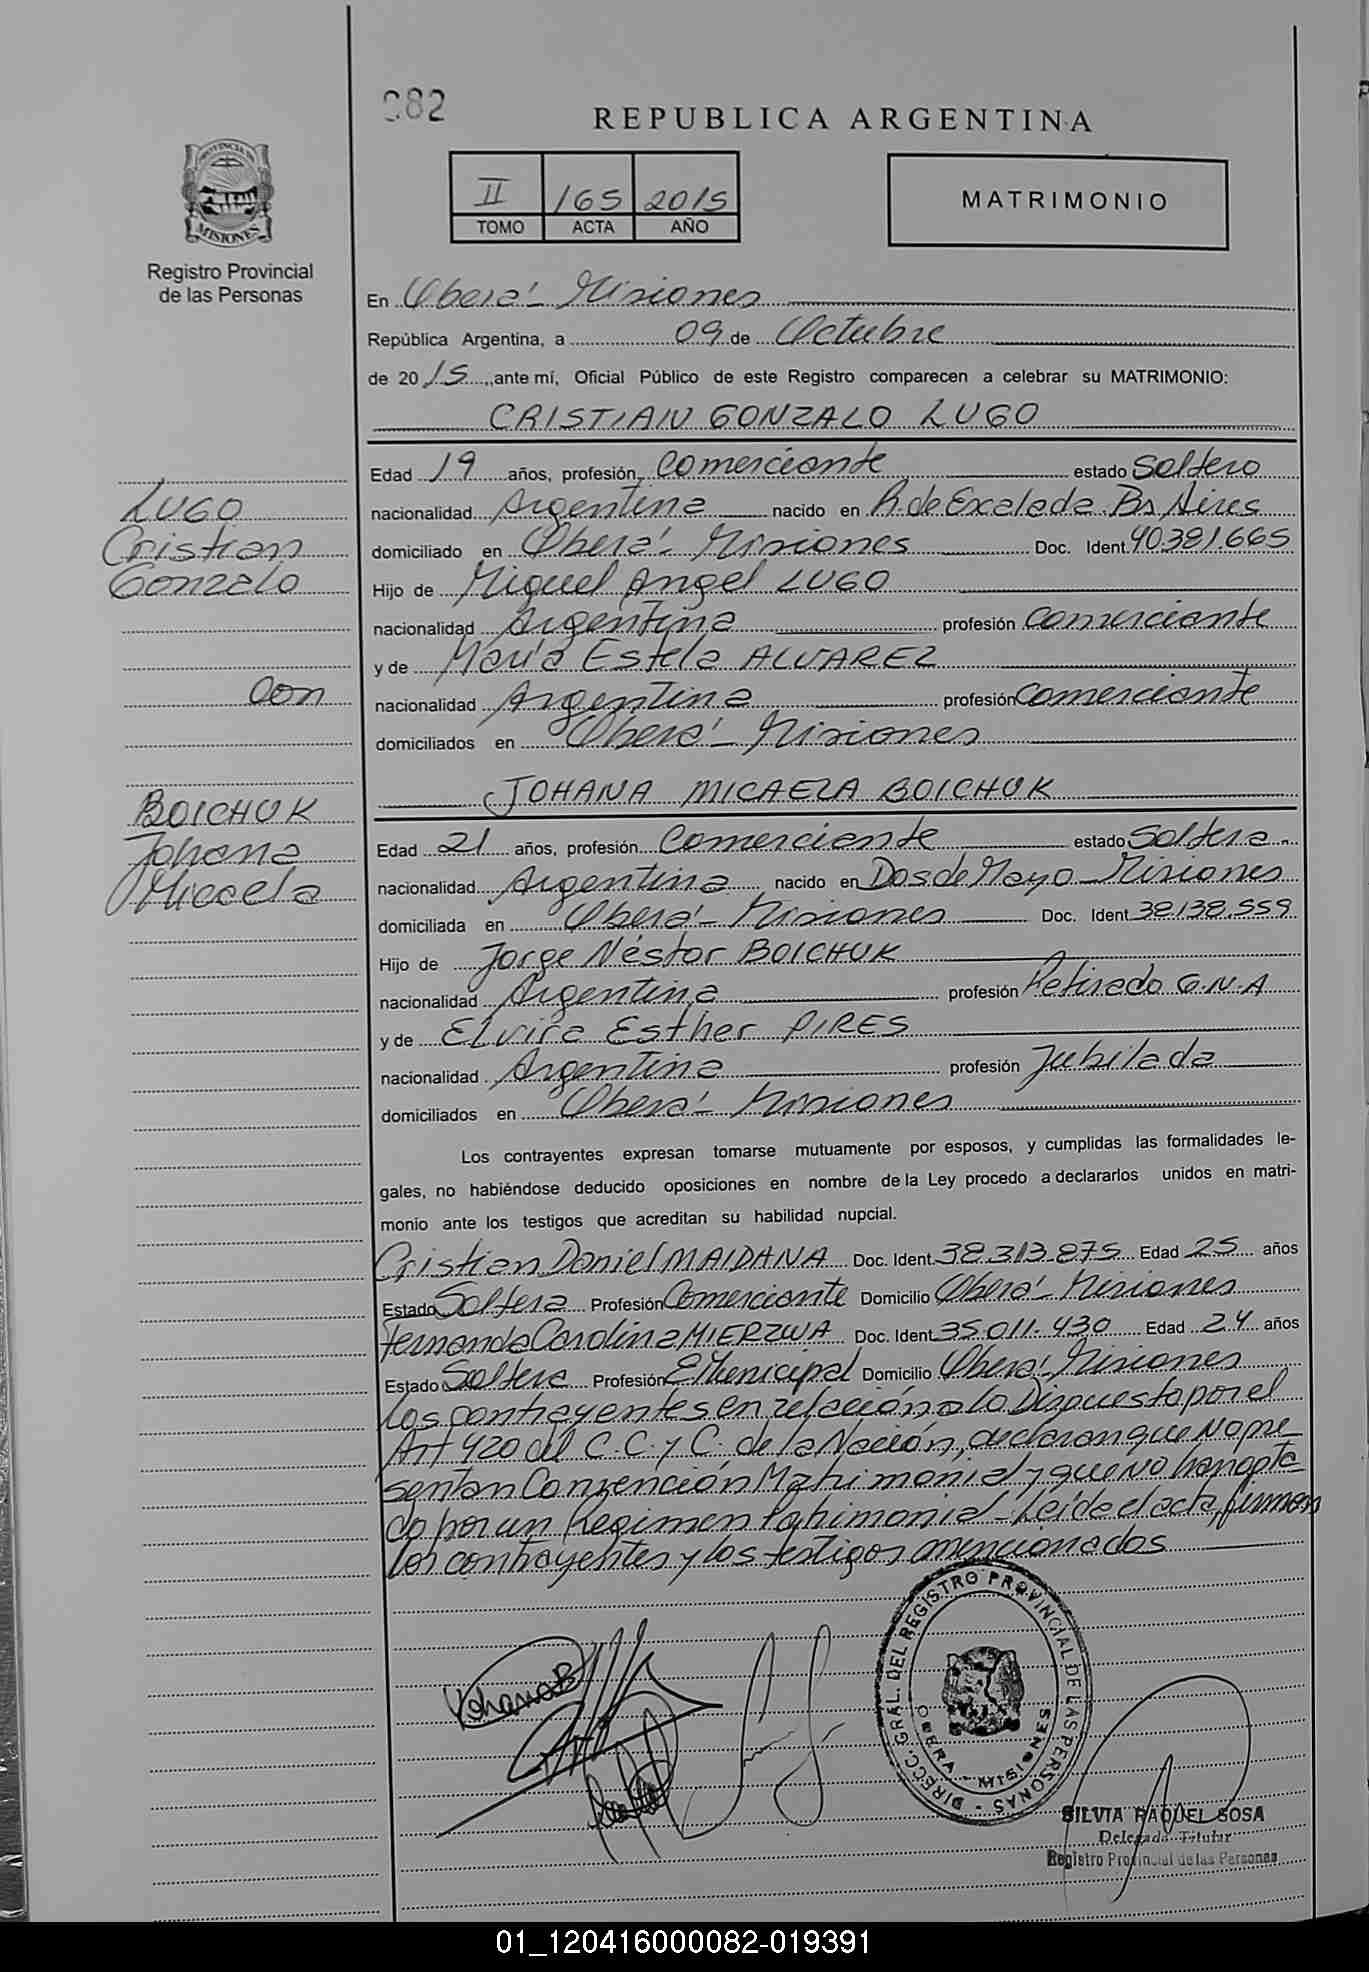 082
REPUBLICA ARGENTINA
II 165 2015
TOMO ACTA AÑO
MATRIMONIO
PROVINCIA DE
MISIONES
Registro Provincial
de las Personas
En Oberá - Misiones
República Argentina, a 09 de Octubre
de 2015, ante mí, Oficial Público de este Registro comparecen a celebrar su MATRIMONIO:
CRISTIAN GONZALO LUGO
Edad 19 años, profesión, Comerciante estado Soltero
nacionalidad Argentina nacido en R. de Escalada. Bs Aires
domiciliado en Oberá - Misiones Doc. Ident. 40.381.665
Hijo de Miguel Angel LUGO
nacionalidad Argentina profesión Comerciante
y de María Estela ALVAREZ
nacionalidad Argentina profesión Comerciante
domiciliados en Oberá - Misiones
LUGO
Cristian
Gonzalo
con
BOICHUK
Johana
Micaela
JOHANA MICAELA BOICHUK
Edad 21 años, profesión Comerciante estado Soltera
nacionalidad Argentina nacido en Dos de Mayo - Misiones
domiciliada en Oberá - Misiones Doc. Ident 38.138.559
Hijo de Jorge Néstor BOICHUK
nacionalidad Argentina profesión Retirado G.N.A
y de Elvira Esther PIRES
nacionalidad Argentina profesión Jubilada
domiciliados en Oberá - Misiones
Los contrayentes expresan tomarse mutuamente por esposos, y cumplidas las formalidades le-
gales, no habiéndose deducido oposiciones en nombre de la Ley procedo a declararlos unidos en matri-
monio ante los testigos que acreditan su habilidad nupcial.
Cristian Daniel MAIDANA Doc. Ident. 38.313.875 Edad 25 años
Estado Soltera Profesión Comerciante Domicilio Oberá - Misiones
Fernanda Carolina MIERZWA Doc. Ident 35.011.430 Edad 24 años
Estado Soltera Profesión E. Municipal Domicilio Oberá - Misiones
Los contrayentes en relación a lo Dispuesto por el
Art 420 del C.C. y C. de la Nación, declaran que No pre
sentan Convención Matrimonial y que No han opta
do por un Regimen Patrimonial - Leída el acta, firman
los contrayentes y los testigos mencionados
Johana B
DIRECC. GRAL. DEL REGISTRO PROVINCIAL DE LAS PERSONAS -
OBERA - MISIONES
SILVIA RAQUEL SOSA
Delegada Titular
Registro Provincial de las Personas
01_120416000082-019391